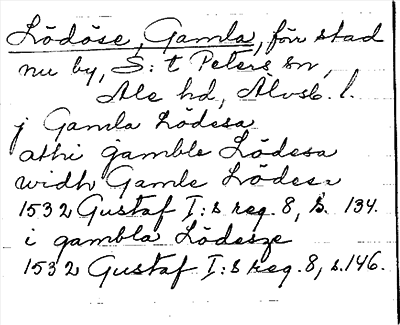 Lödöse, Gamla, för stad
nu by, S:t Peters sn,
Ale hd, Älvsb. l.
j Gamla Lödesa
athi gamble Lödesa
widh Gamle Lrödes-
1532 Gustaf I:s reg. 8, s. 134.
i gambla Lödesze
1532 Gustaf I:s reg. 8, s. 146.